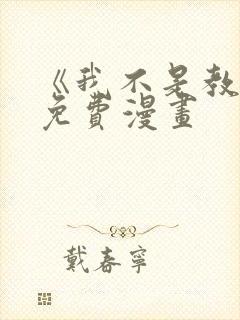 《我不是教
免費漫畫
戴春寧